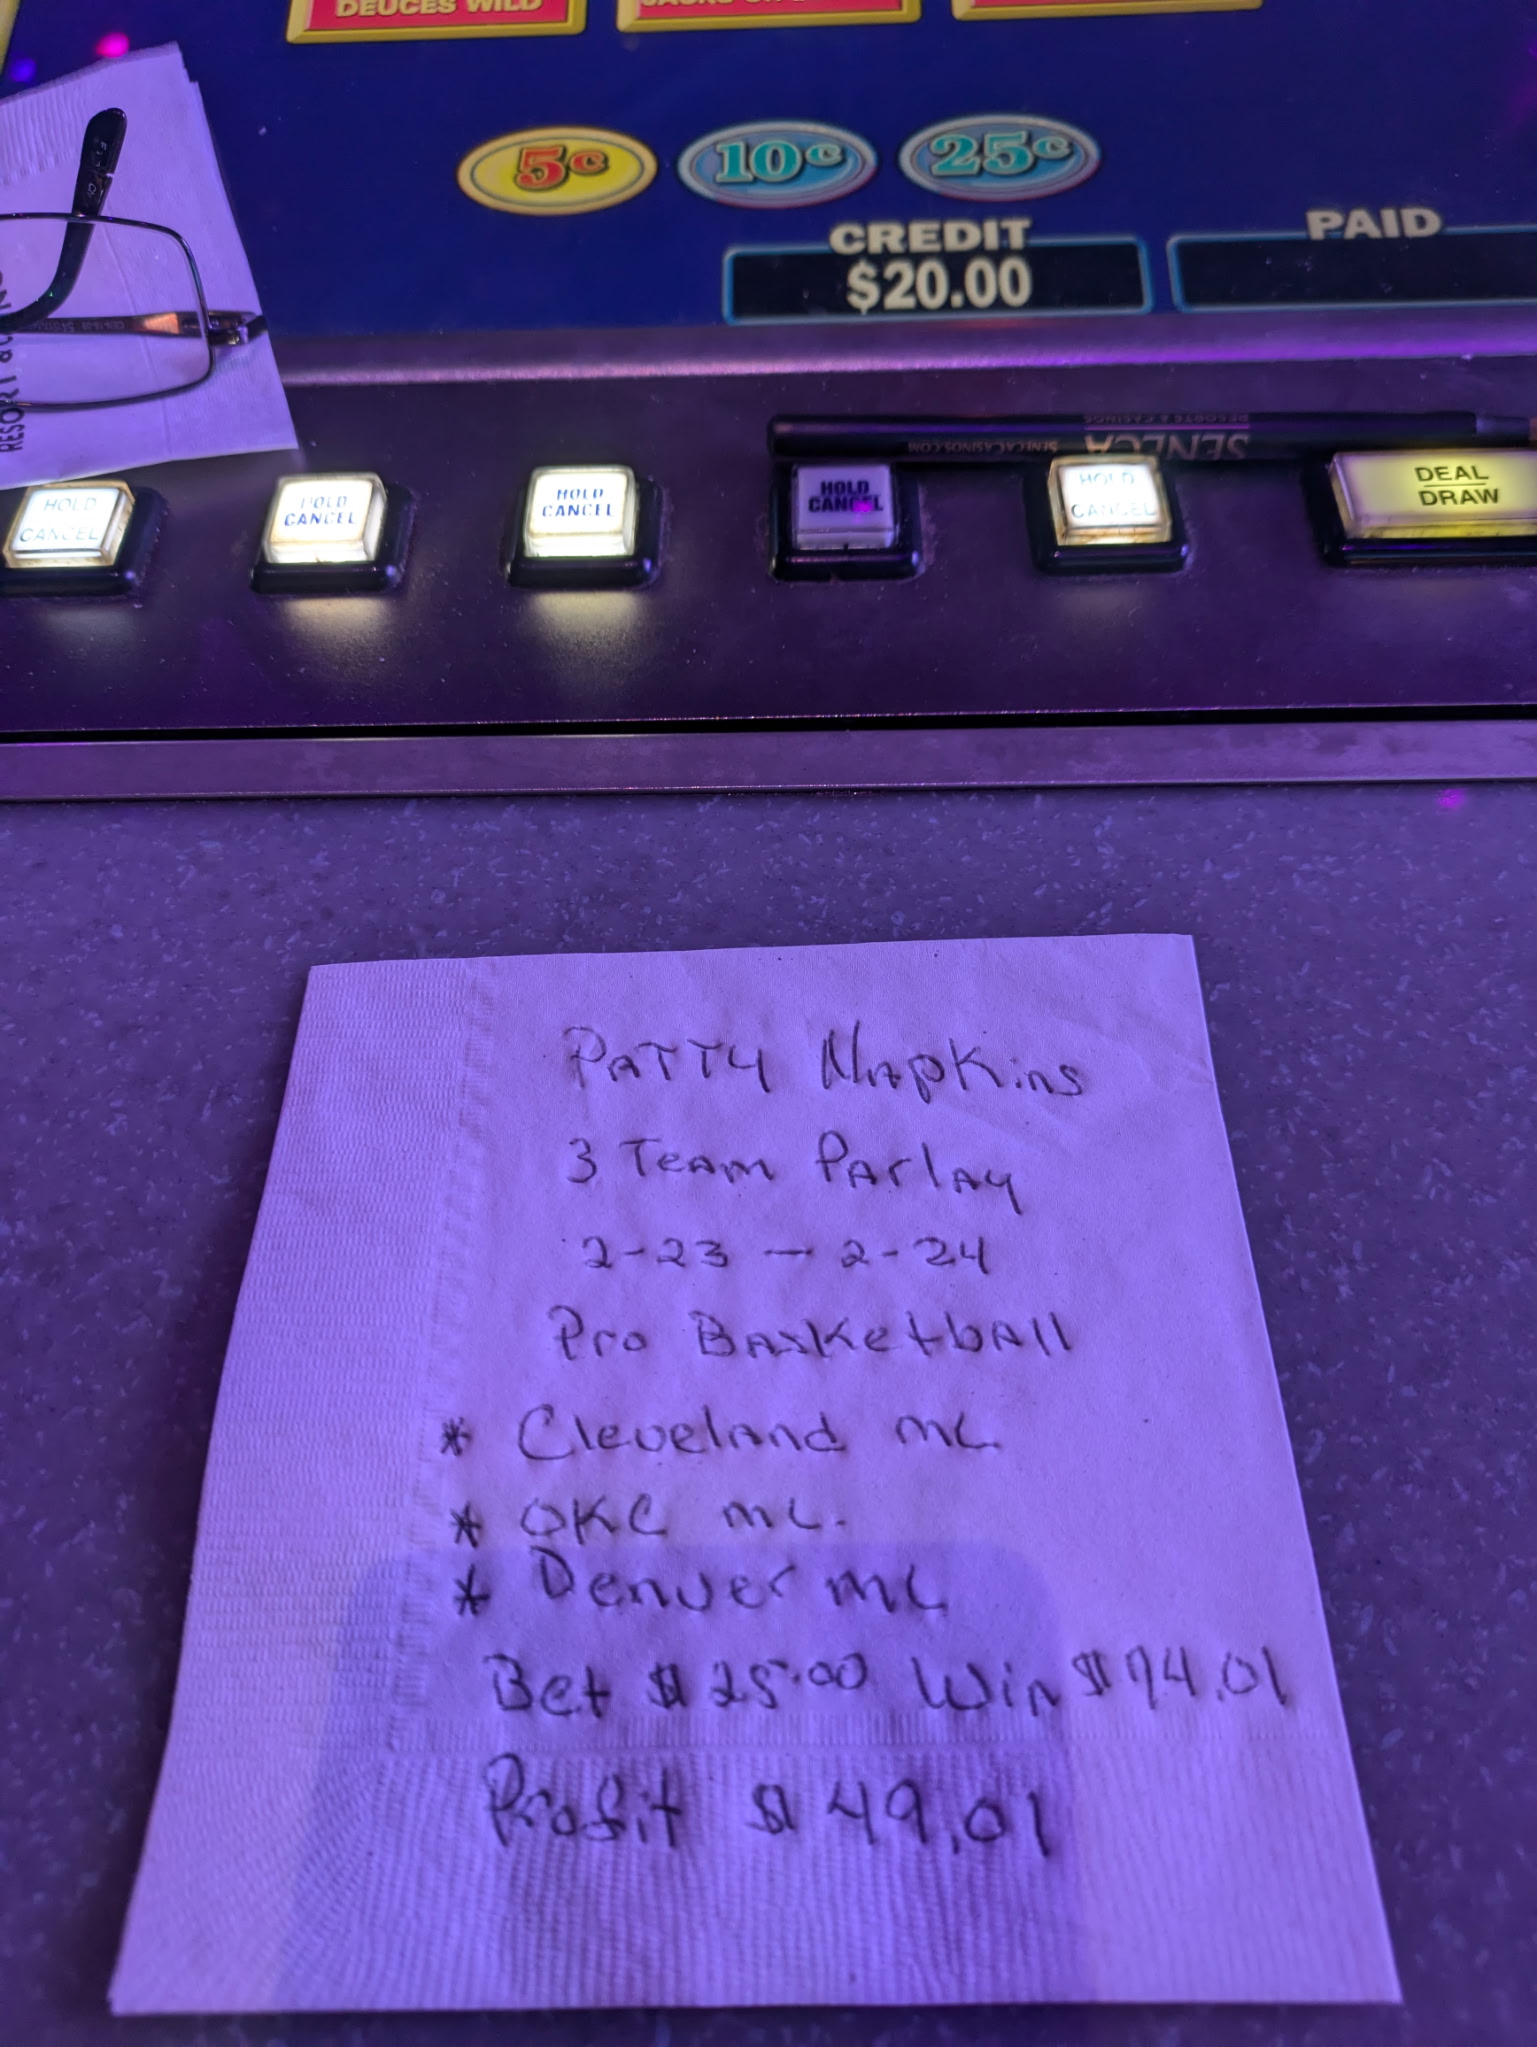 DEUCES WILD
5¢ 10¢ 25¢
CREDIT
$20.00
PAID
RESORT &
SENECA
RESORTS & CASINOS
SENECACASINOS.COM
HOLD
CANCEL
HOLD
CANCEL
HOLD
CANCEL
HOLD
CANCEL
HOLD
CANCEL
DEAL
DRAW
PATTY NApKins
3 TeAm PArlAy
2-23 — 2-24
Pro BAsKetbAll
* ClevelAnd mL.
* OKC mL.
* Denver mL
Bet $25.00 Win $74.01
Profit $49.01